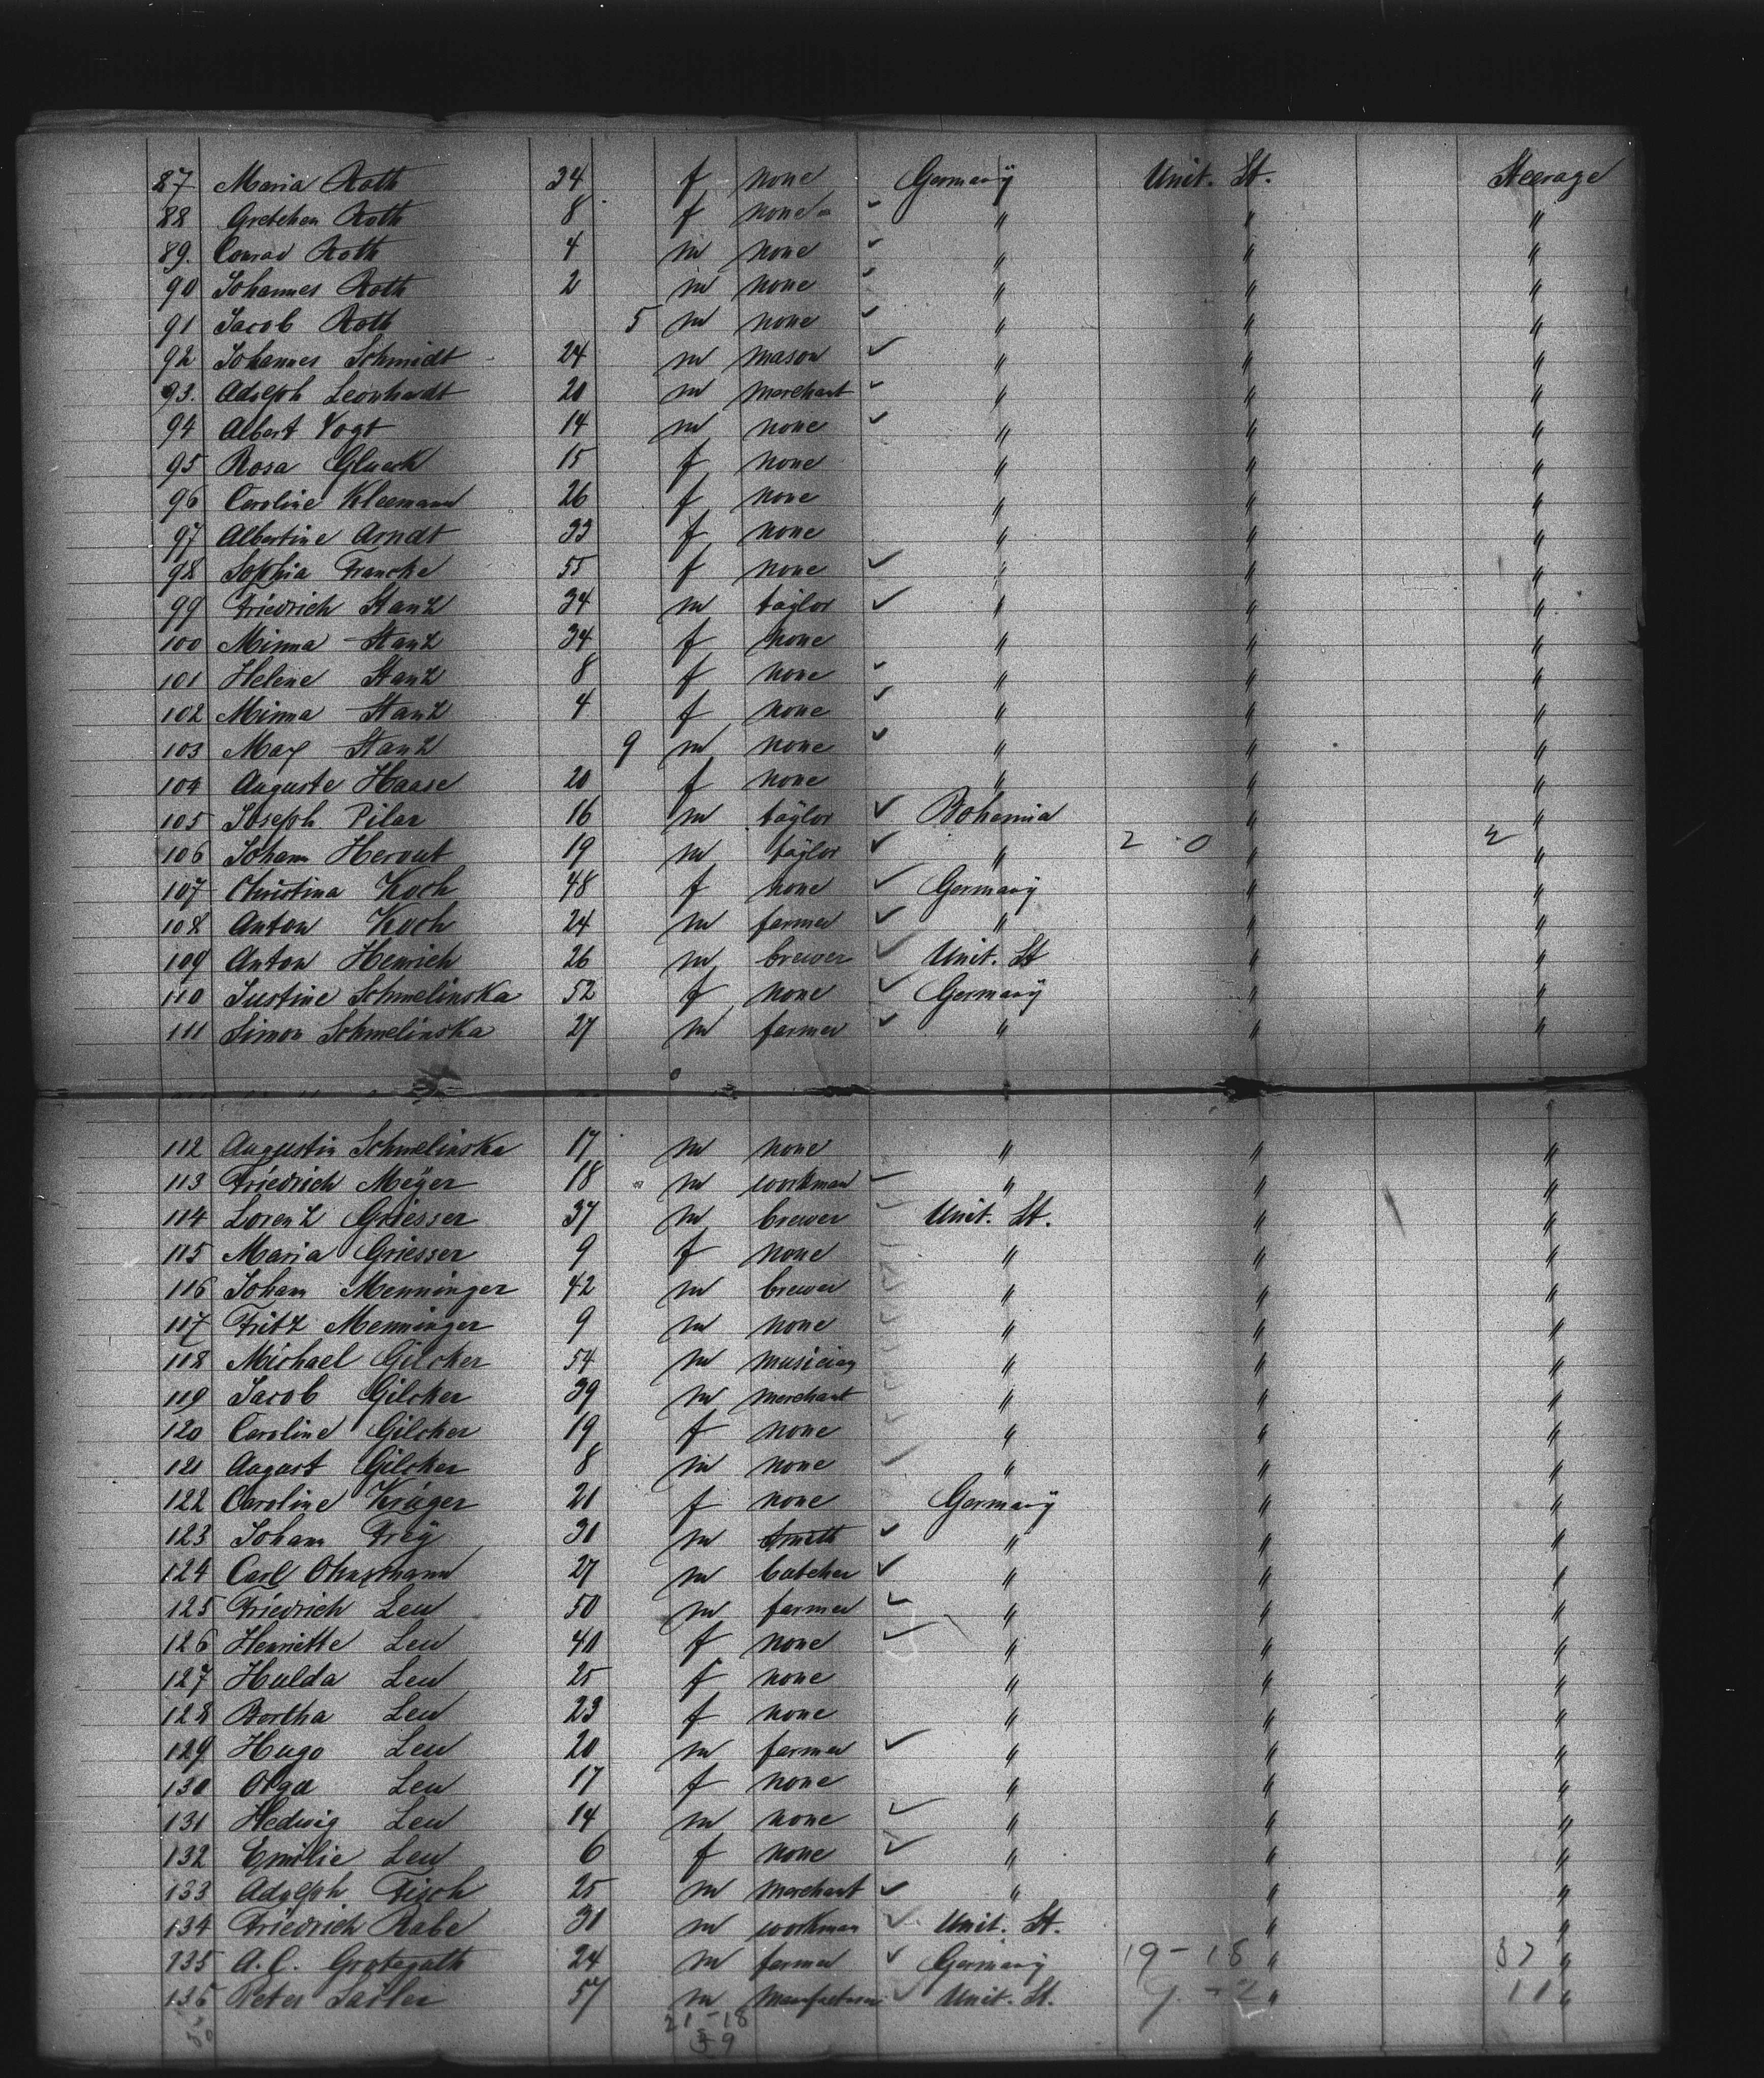 87 Maria Roth 34 f none Germanÿ Unit. St. Steerage
88 Gretchen Roth 8 f none " " "
89. Conrad Roth 4 m none " " "
90 Johannes Roth 2 m none " " "
91 Jacob Roth 5 m none " " "
92 Johannes Schmidt 24 m mason " " "
93. Adolph Leonhardt 20 m merchant " " "
94 Albert Vogt 14 m none " " "
95 Rosa Glueck 15 f none " " "
96 Caroline Kleemann 26 f none " " "
97 Albertine Arndt 33 f none " " "
98 Sophia Francke 55 f none " " "
99 Friedrich Stanz 34 m taÿlor " " "
100 Minna Stanz 34 f none " " "
101 Helene Stanz 8 f none " " "
102 Minna Stanz 4 f none " " "
103 Max Stanz 9 m none " " "
104 Auguste Haase 20 f none " " "
105 Joseph Pilar 16 m taÿlor Bohemia " "
106 Johann Herout 19 m taÿlor " 2 - 0 " 2 "
107 Christina Koch 48 f none Germanÿ " "
108 Anton Koch 24 m farmer " " "
109 Anton Heinrich 26 m brewer Unit. St " "
110 Justine Schmelinska 52 f none Germanÿ " "
111 Simon Schmelinska 27 m farmer " " "
112 Augustin Schmelinska 17 m none " " "
113 Friedrich Meÿer 18 m workman " " "
114 Lorenz Griesser 37 m brewer Unit. St. " "
115 Maria Griesser 9 f none " " "
116 Johann Menninger 42 m brewer " " "
117 Fritz Menninger 9 m none " " "
118 Michael Gilcher 54 m musician " " "
119 Jacob Gilcher 39 m merchant " " "
120 Caroline Gilcher 19 f none " " "
121 August Gilcher 8 m none " " "
122 Caroline Krüger 21 f none Germanÿ " "
123 Johann Freÿ 31 m smith " " "
124 Carl 27 m butcher " " "
125 Friedrich Leu 50 m farmer " " "
126 Henriette Leu 40 f none " " "
127 Hulda Leu 25 f none " " "
128 Bertha Leu 23 f none " " "
129 Hugo Leu 20 m farmer " " "
130 Olga Leu 17 f none " " "
131 Hedwig Leu 14 m none " " "
132 Emilie Leu 6 f none " " "
133 Adolph Fisch 25 m merchant " " "
134 Friedrich Rabe 31 m workman Unit. St. " "
135 A. C. Grotegath 24 m farmer Germanÿ 19 - 18 " 37 "
136 Peter 57 m Unit. St. 9 - 2 " 11 "
21 - 18
39